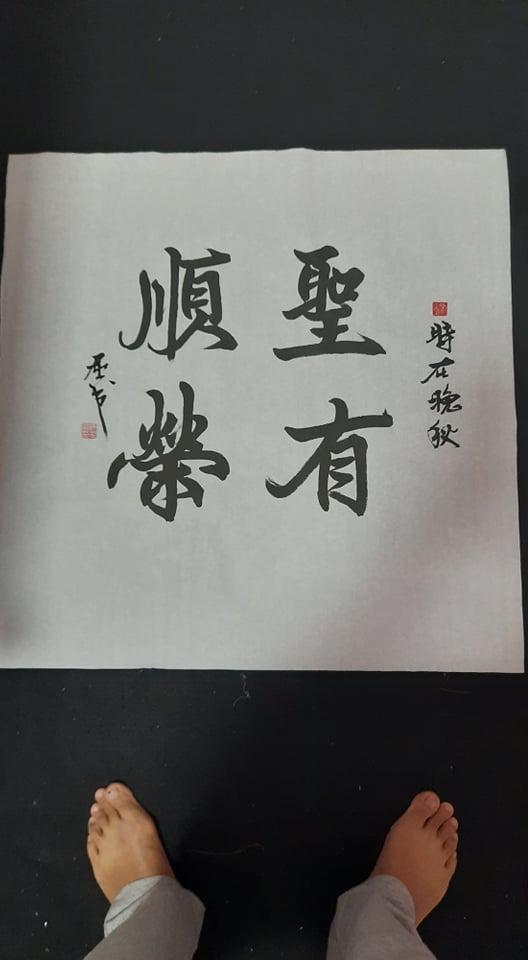 時在晚秋
聖有
順榮